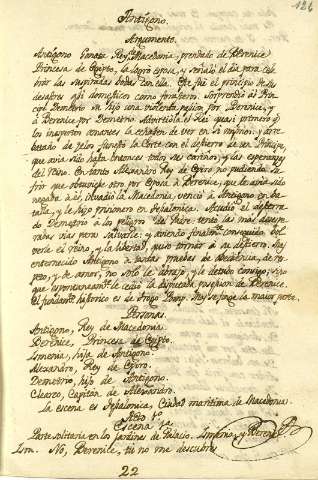 126
Antigono.
Argumento.
Antigono Gonata Rey de Macedonia, prendado de Berenice
Princesa de Egipto, la logró esposa, y señaló el dia para cele
brar las suspiradas bodas con ella. Este fué el principio de sus
desastres asi domesticos como forasteros. Sorprendió al Prin
cipe Demetrio su hijo una violenta pasion por Berenice, y
á Berenice por Demetrio. Advirtióla el Rey quasi primero q.
los inexpertos amantes la echasen de ver en si mismos: y arre
batado de zelos funestó la Corte con el destierro de un Principe,
que avia sido hasta entonces todo sus cariños, y las esperanzas
del Reino. En tanto Alexandro Rey de Epiro no pudiendo su
frir que obtuviese otro por esposa à Berenice, que le avia sido
negada à èl, invadió la Macedonia, venció à Antigono en ba
talla, y le hizo prisionero en Tesalonica. Acudió el desterra
do Demetrio à los peligros del Padre: tentó las mas desespe
radas vias para salvarle: y aviendo finalm.te conseguido bol
verle el Reino, y la libertad, quiso tornar à su destierro. Mas
enternecido Antigono à tantas pruebas de obediencia, de res
peto, y de amor, no solo le abrazó, y le detubo consigo, sino
que espontaneam.te le cedió la disputada posesion de Berenice.
El fundam.to historico es de Trogo Pomp. Mas se finge la maior parte.
Personas.
Antigono, Rey de Macedonia.
Berenice, Princesa de Egipto.
Ismenia, hija de Antigono.
Alexandro, Rey de Epiro.
Demetrio, hijo de Antigono.
Clearco, Capitan de Alexandro.
La escena es Tesalonica, Ciudad maritima de Macedonia.
Acto 1.º
Escena 1.ª
Parte solitaria en los jardines de Palacio. Ismenia, y Berenice
Ism. No, Berenice, tú no me descubres
22